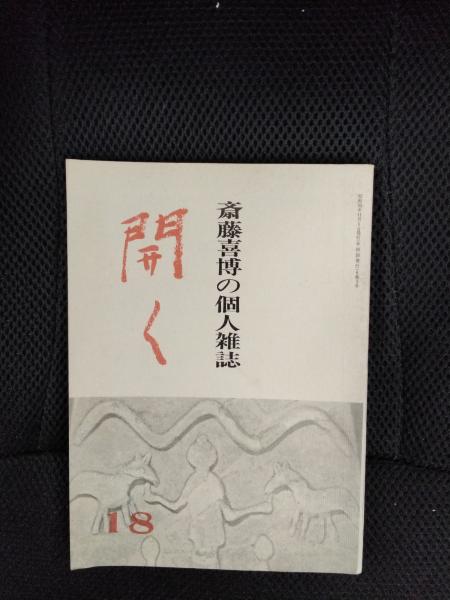 斎藤喜博の個人雑誌
開く
18